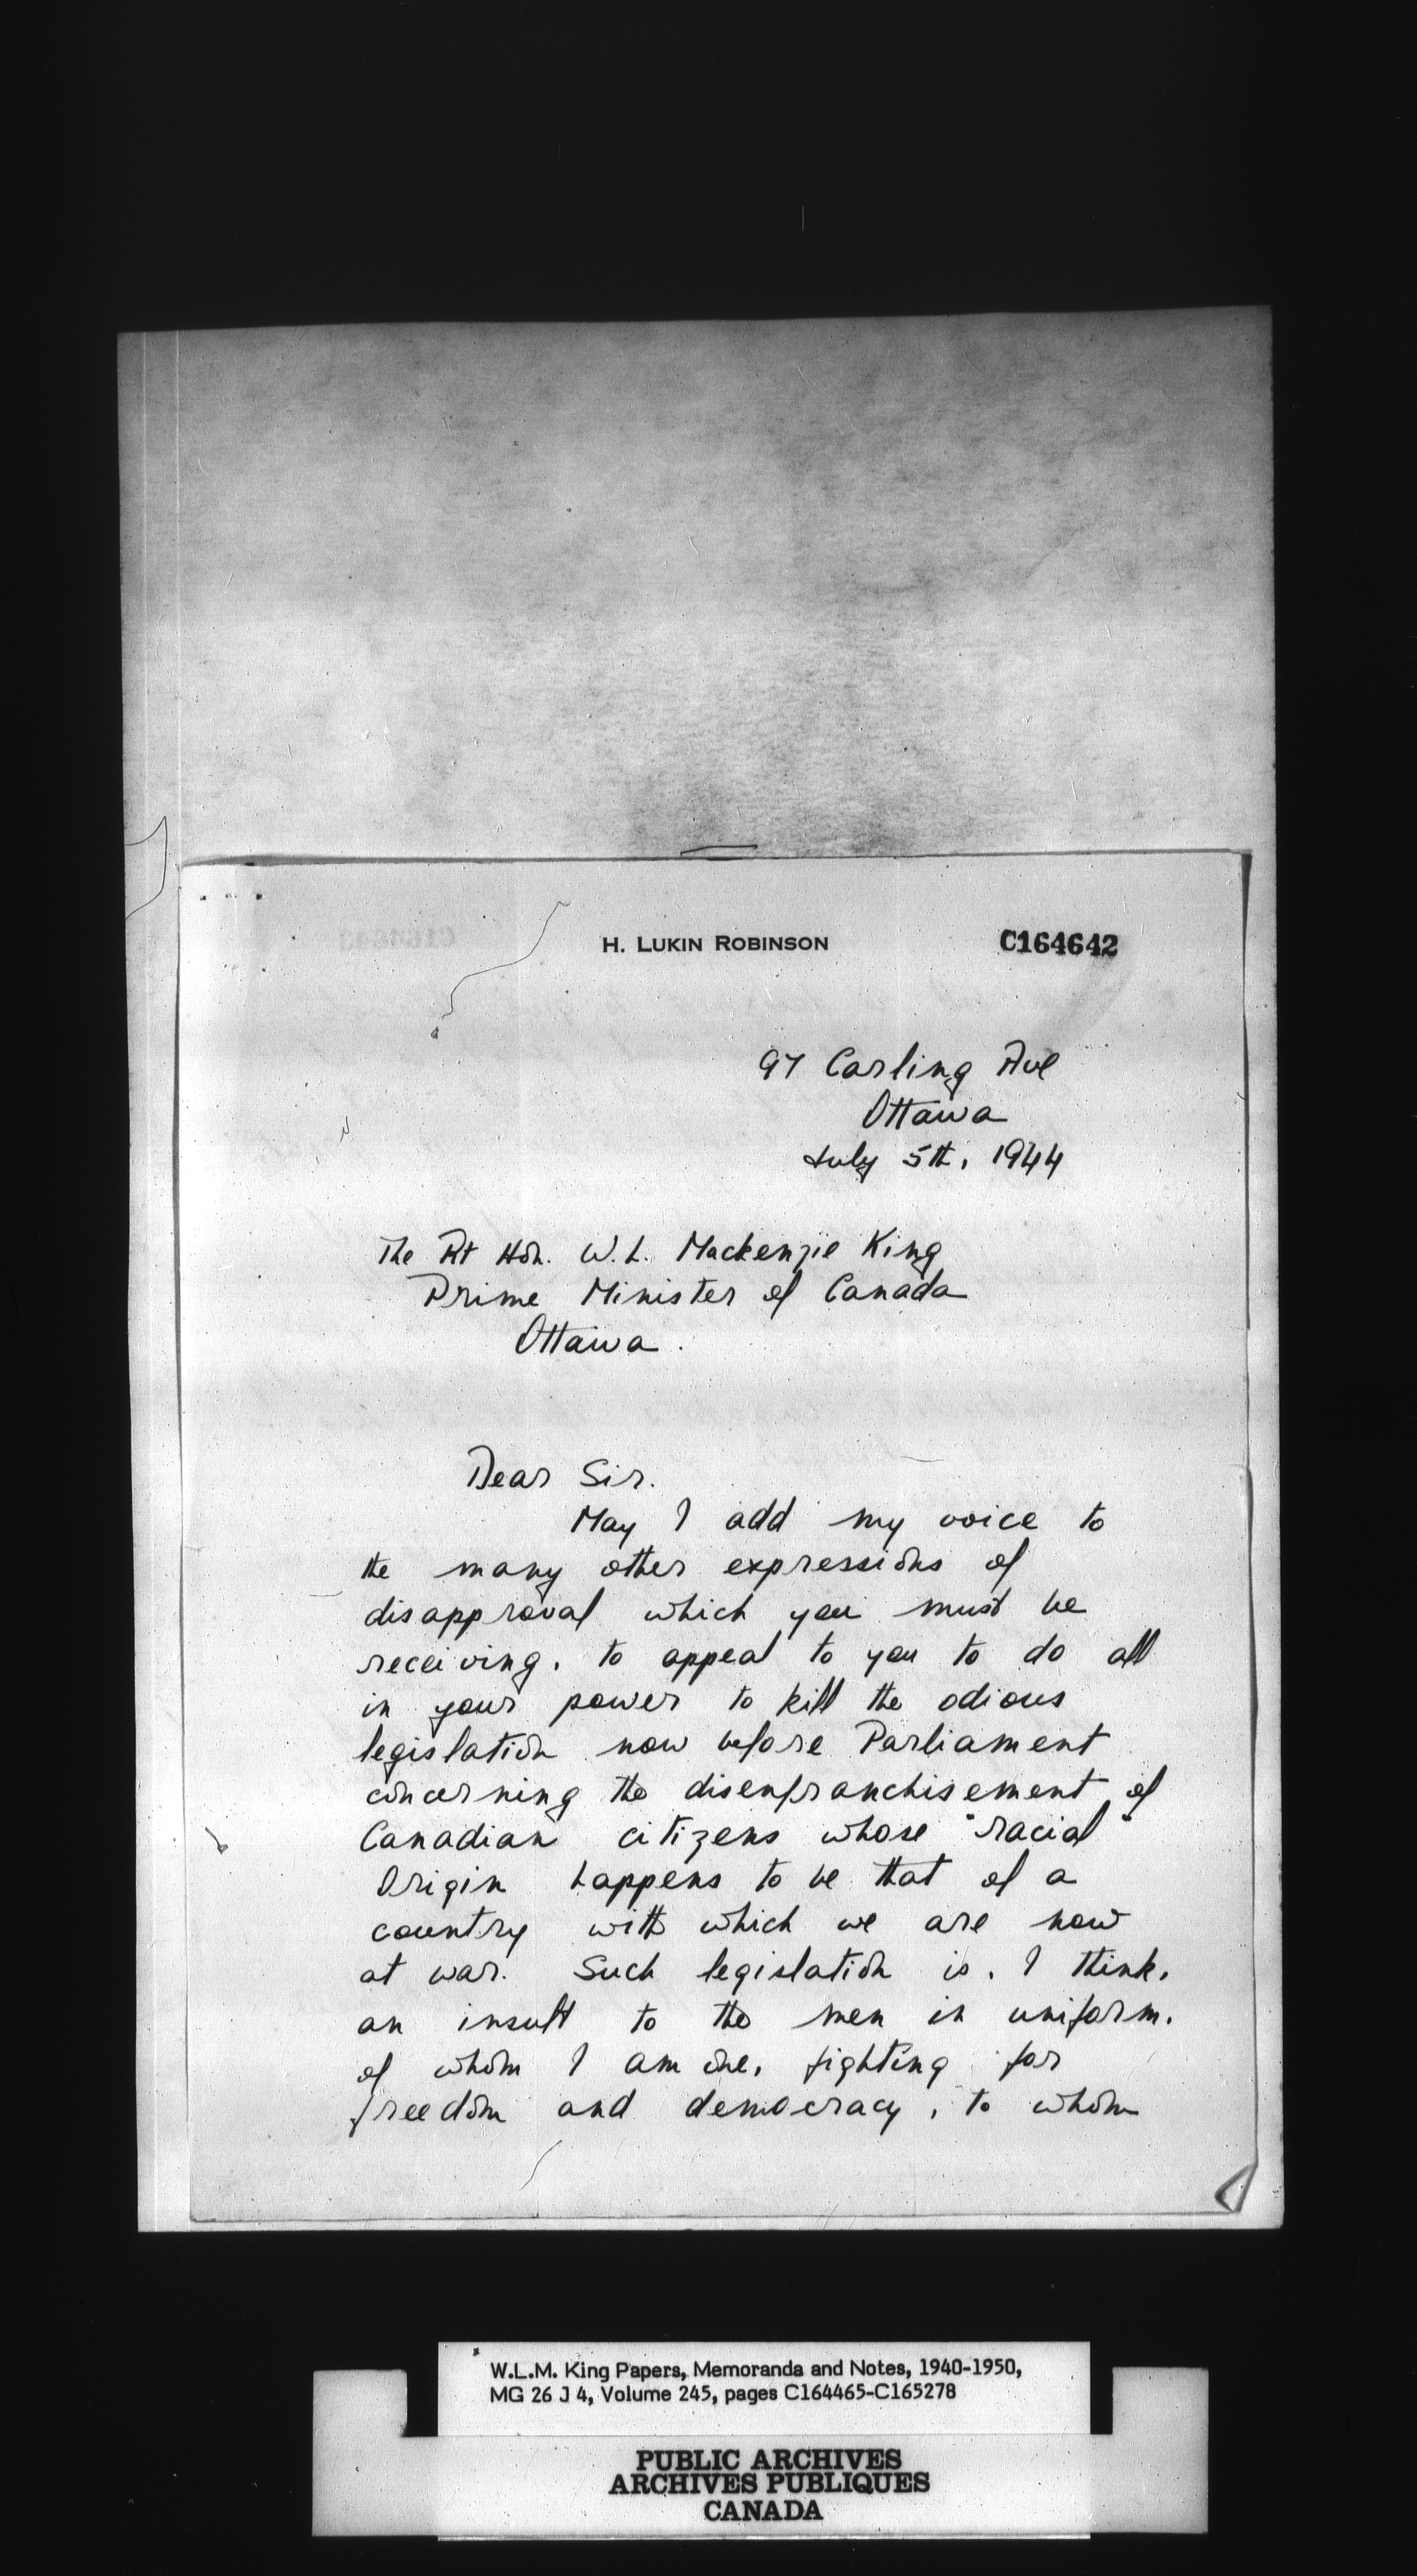 H. LUKIN ROBINSON
C164642
97 Carling Ave
Ottawa
July 5th, 1944
The Rt Hon. W.L. Mackenzie King
Prime Minister of Canada
Ottawa.
Dear Sir.
May I add my voice to
the many other expressions of
disapproval which you must be
receiving, to appeal to you to do all
in your power to kill the odious
legislation now before Parliament
concerning the disenfranchisement of
Canadian citizens whose "racial"
origin happens to be that of a
country with which we are now
at war. Such legislation is, I think,
an insult to the men in uniform,
of whom I am one, fighting for
freedom and democracy, to whom
W.L.M. King Papers, Memoranda and Notes, 1940-1950,
MG 26 J 4, Volume 245, pages C164465-C165278
PUBLIC ARCHIVES
ARCHIVES PUBLIQUES
CANADA